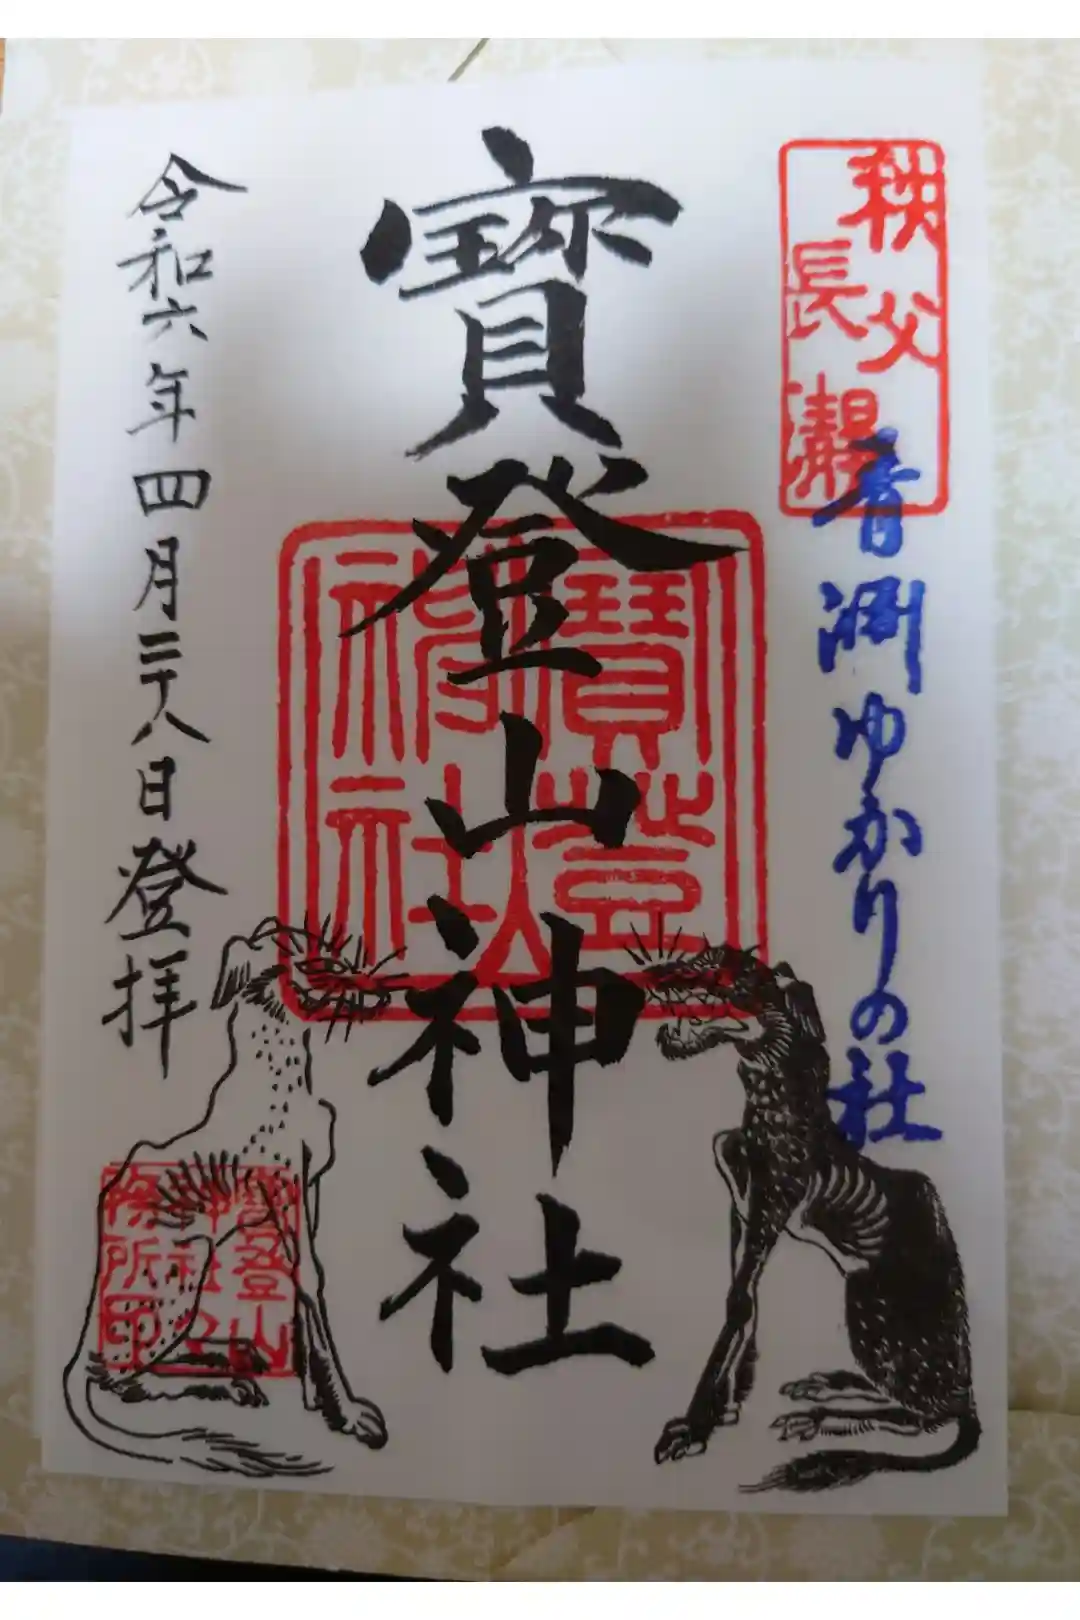 秩父
長瀞
青淵ゆかりの社
寳登山神社
寳登山
神社
令和六年四月二十八日登拝
寳登山
神社々
務所印